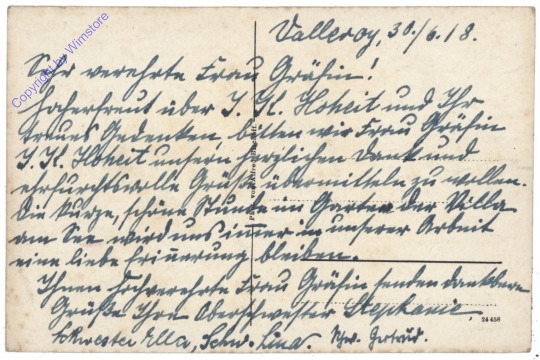 Valleroy, 30./6.18.
Sehr verehrte Frau Gräfin!
Hocherfreut über I. K. Hoheit und Ihr
treues Gedenken, bitten wir Frau Gräfin
I. K. Hoheit unsern herzlichen Dank und
ehrfurchtsvolle Grüße übermitteln zu wollen.
Die kurze, schöne Stunde im Garten der Villa
am See wird uns immer in unserer Arbeit
eine liebe Erinnerung bleiben.
Ihnen hochverehrte Frau Gräfin senden dankbare
Grüße Ihre Oberschwester Stephanie,
Schwester Ella, Schw. Lina. Schw. Gertrud.
24 458
Copyright by Wimstore